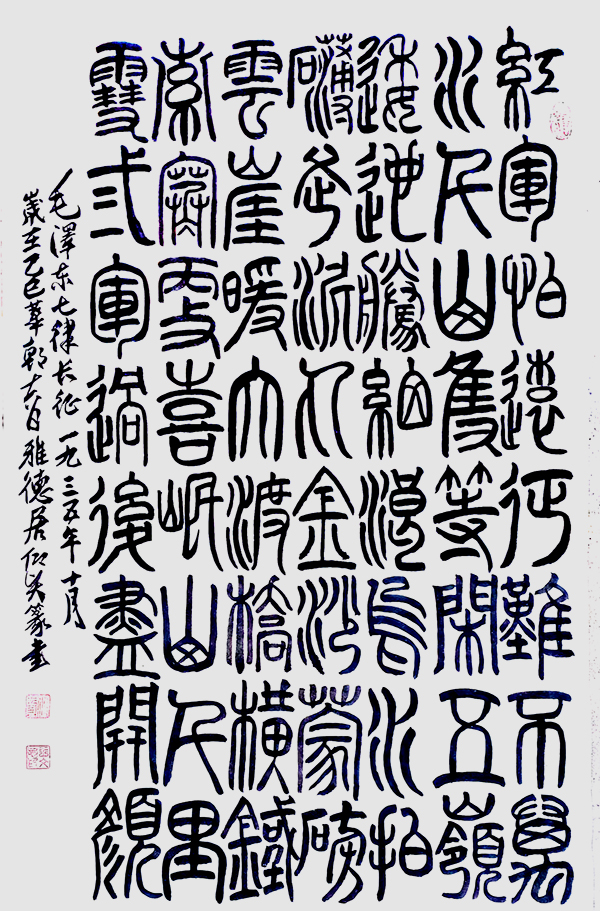 紅軍怕遠征難不萬
水千山隻等閑五嶺
逶迤騰細浪烏水拍
礴走泥丸金沙蒙磅
雲崖暖大渡橋橫鐵
索寒更喜岷山千里
雪弎軍過後盡開顏
毛澤东七律长征一九三五年十月
歲在乙巳華朝日雅德居仰天篆書